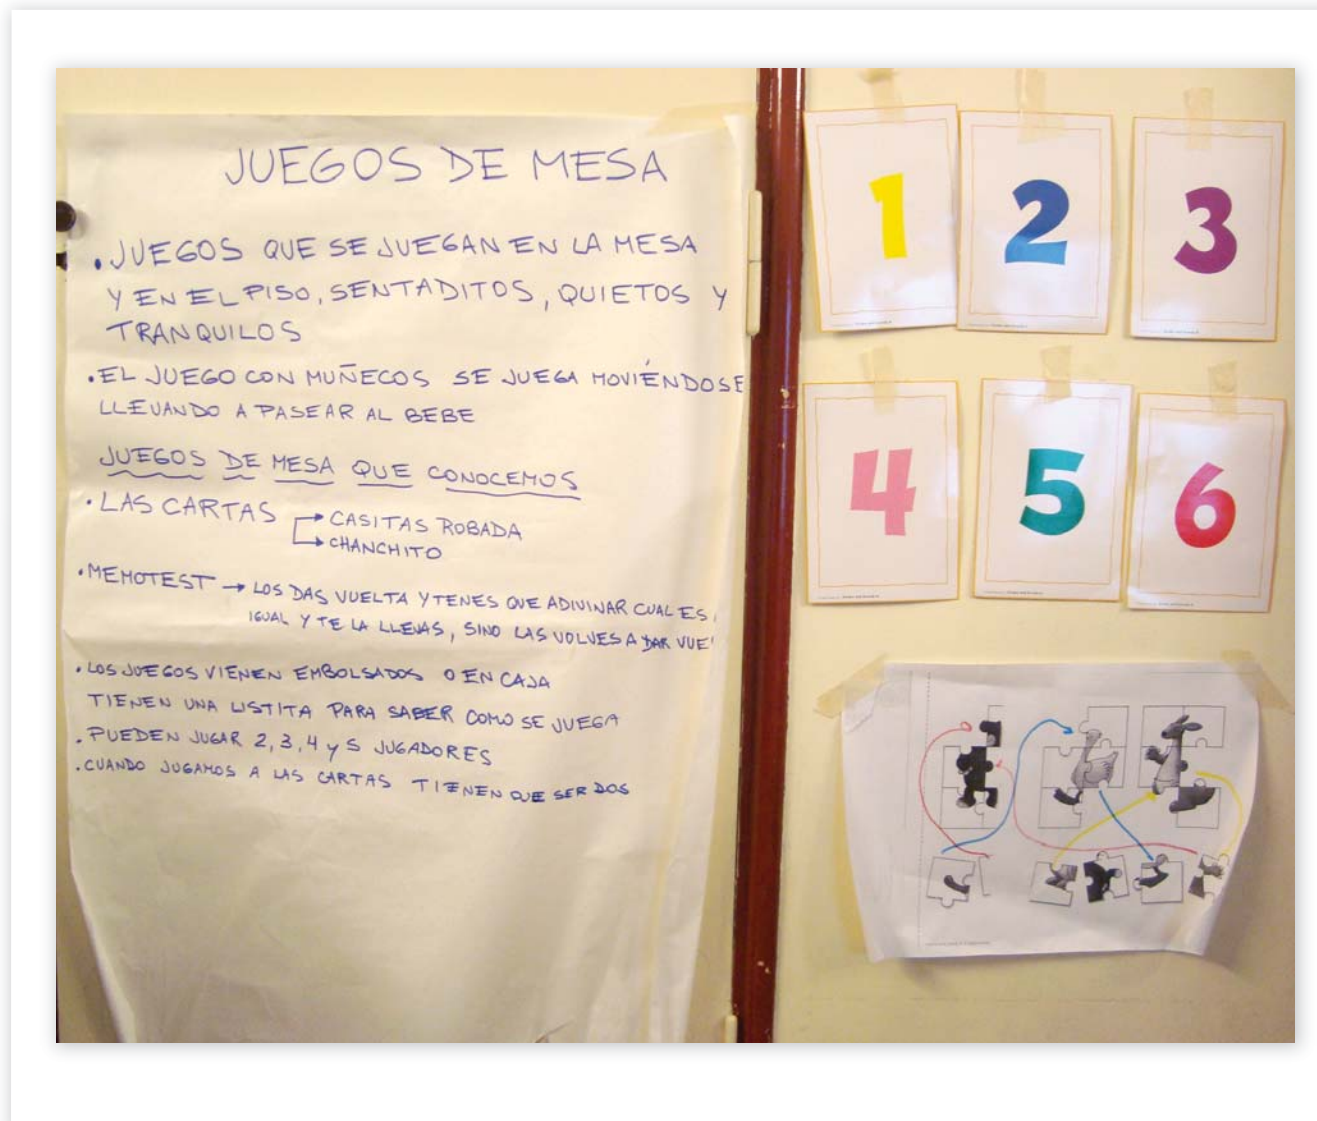 JUEGOS DE MESA
. JUEGOS QUE SE JUEGAN EN LA MESA
Y EN EL PISO, SENTADITOS, QUIETOS Y
TRANQUILOS
. EL JUEGO CON MUÑECOS SE JUEGA MOVIÉNDOSE
LLEVANDO A PASEAR AL BEBE
JUEGOS DE MESA QUE CONOCEMOS
. LAS CARTAS → CASITAS ROBADA
→ CHANCHITO
. MEMOTEST → LOS DAS VUELTA Y TENES QUE ADIVINAR CUAL ES
IGUAL Y TE LA LLEVAS, SINO LAS VOLVES A DAR VUE
. LOS JUEGOS VIENEN EMBOLSADOS O EN CAJA
TIENEN UNA LISTITA PARA SABER COMO SE JUEGA
. PUEDEN JUGAR 2, 3, 4 y 5 JUGADORES
. CUANDO JUGAMOS A LAS CARTAS TIENEN QUE SER DOS
1 2 3
4 5 6